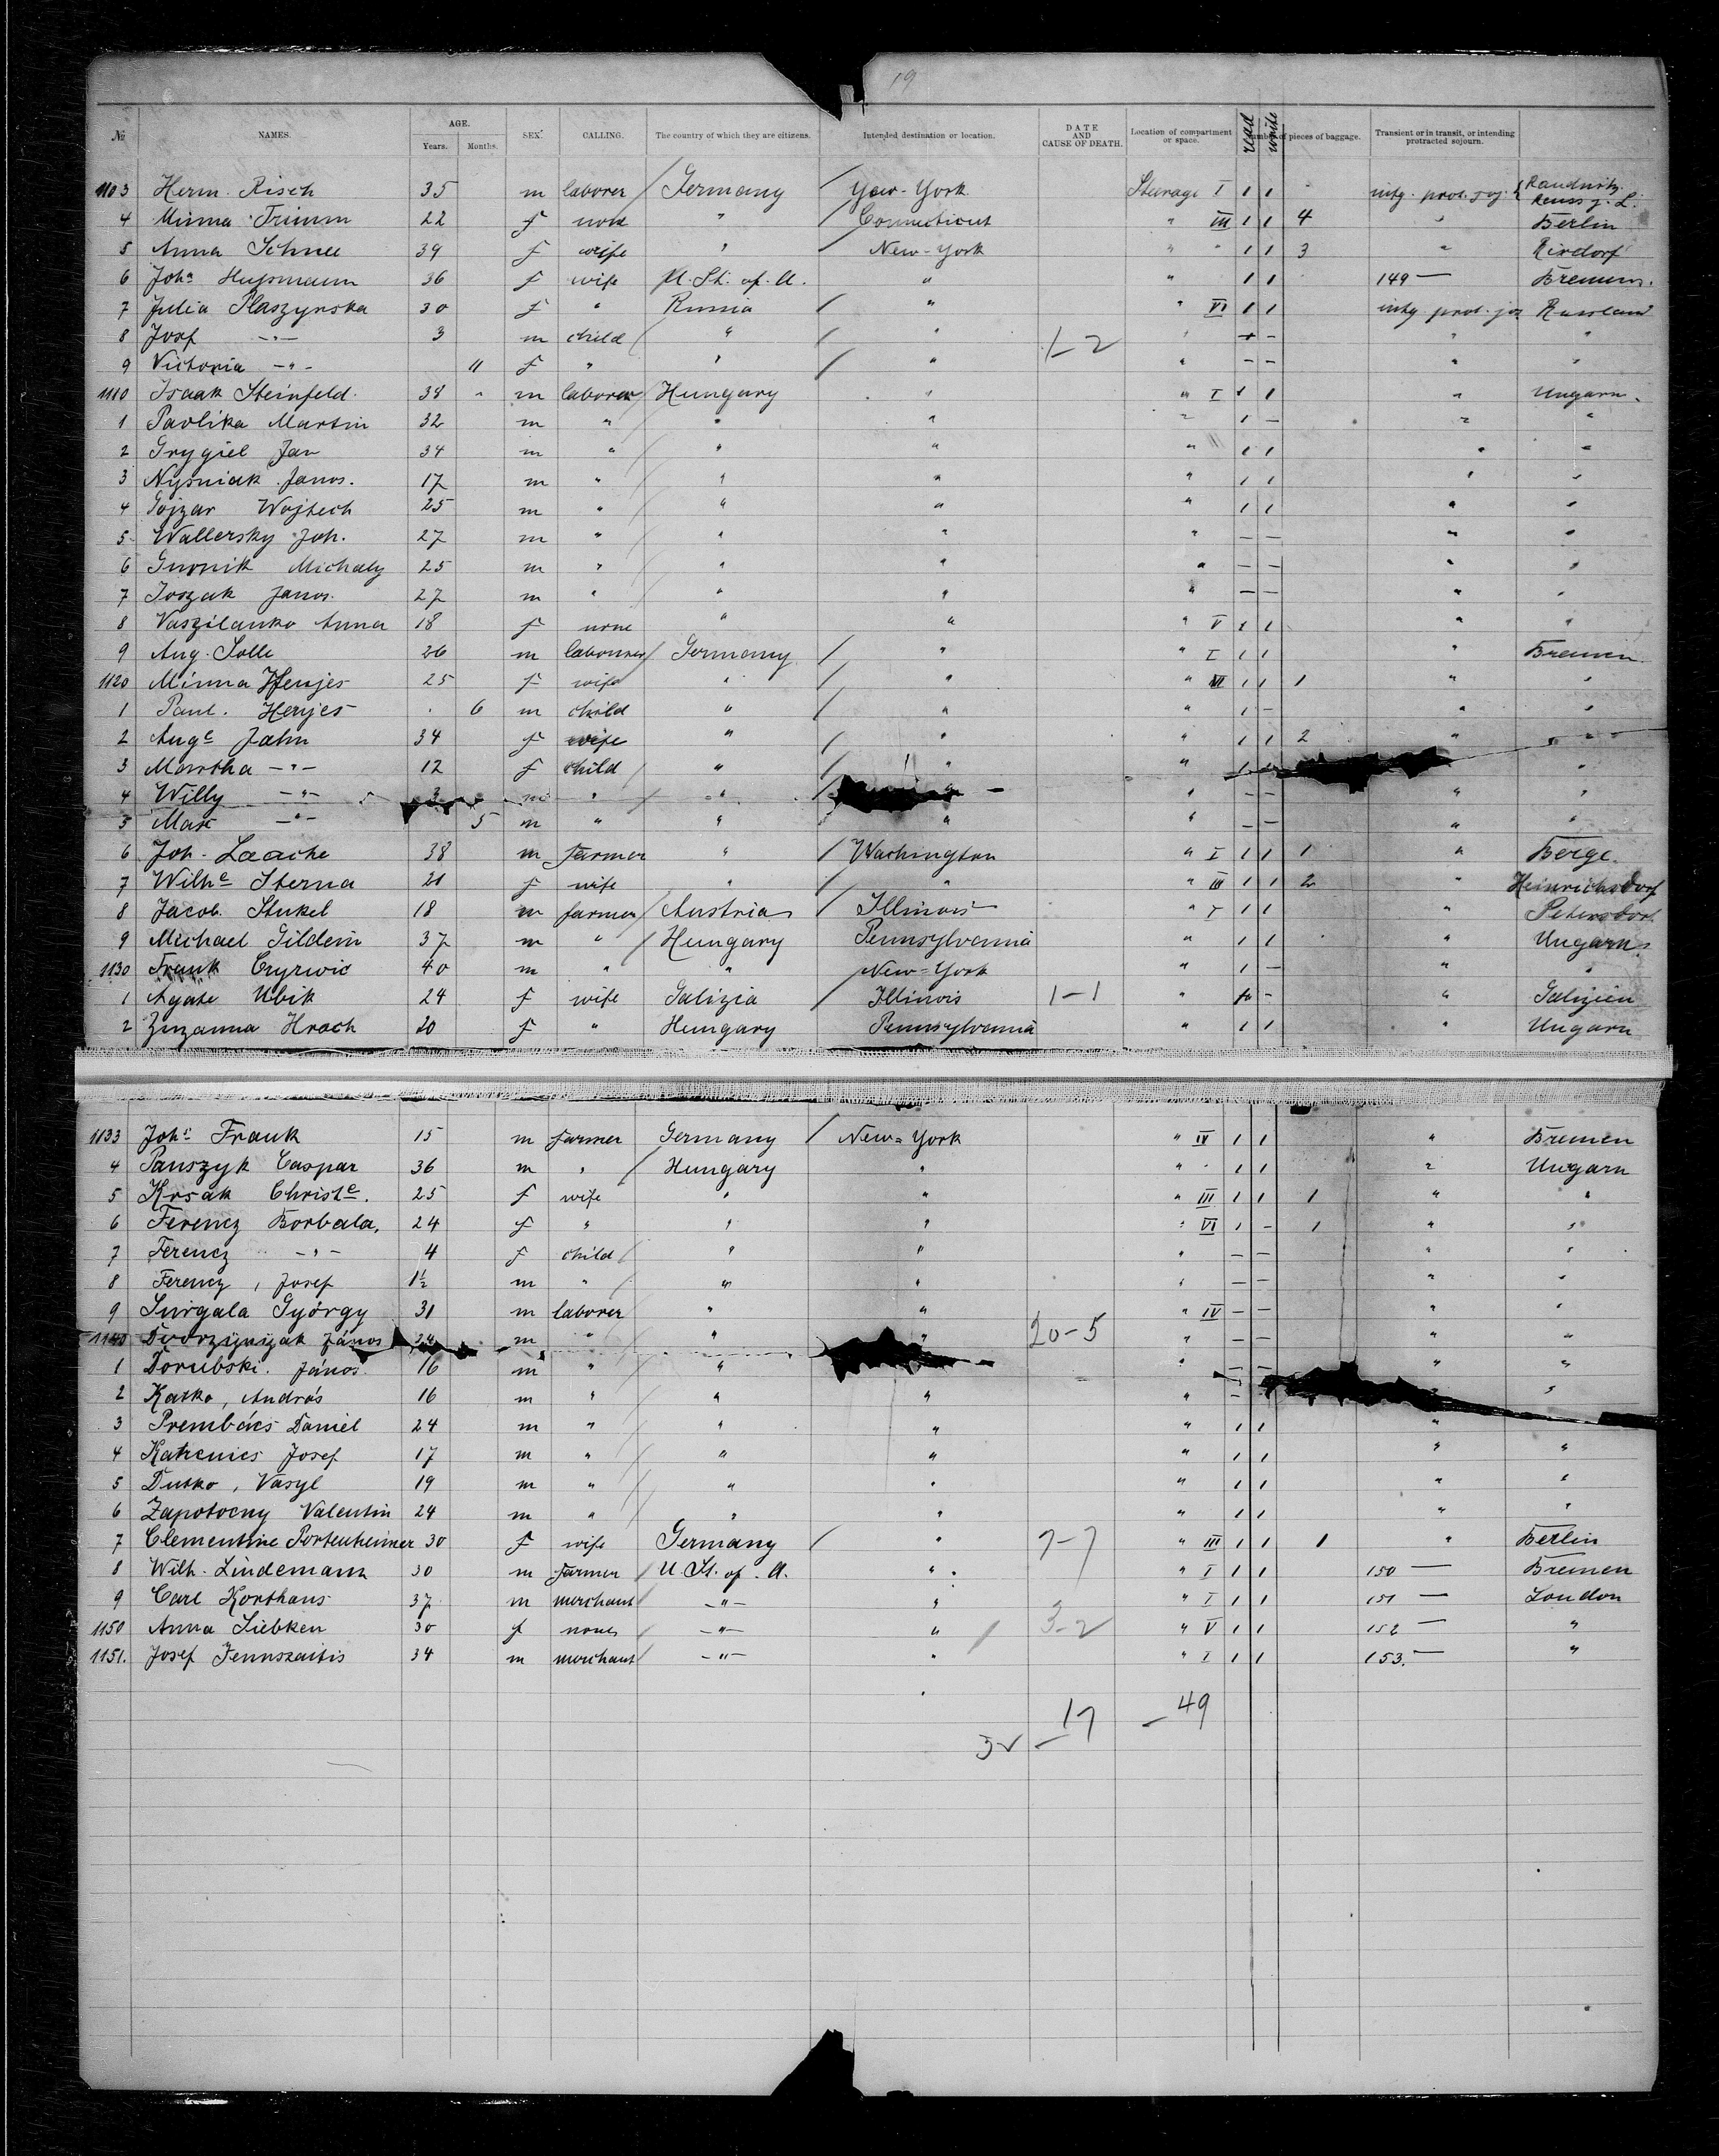 19
№ NAMES. AGE. Years. Months. SEX. CALLING. The country of which they are citizens. Intended destination or location. DATE AND CAUSE OF DEATH. Location of compartment or space. read write Number of pieces of baggage. Transient or in transit, or intending protracted sojourn.
1103 Herm. Risch 35 m laborer Germany New-York Steerage I 1 1 intg. prot. soj. Raudnitz Reuss j. L.
4 Minna Trimm 22 f none " Connecticut " III 1 1 4 " Berlin
5 Anna Schnee 39 f wife " New-York " " 1 1 3 " Rixdorf
6 Joh.a Husmann 36 f wife U. St. of. A. " " 1 1 149 — Bremen.
7 Julia Plaszynska 30 f " Russia " " VI 1 1 intg prot. soj Russland
8 Josef —"— 3 m child " " 1-2 " + - " "
9 Victoria —"— 11 f " " " " — — " "
1110 Isaak Steinfeld. 38 m laborer Hungary " " I 1 1 " Ungarn.
1 Pavlika Martin 32 m " " " " 1 — " "
2 Grygiel Jan 34 m " " " " 1 1 " "
3 Nysniak Janos. 17 m " " " " 1 1 " "
4 Gojzar Wojtech 25 m " " " " 1 1 " "
5 Wallersky Joh. 27 m " " " " — — " "
6 Michaly 25 m " " " " — — " "
7 Joszak Janos. 27 m " " " " — — " "
8 Vaszilanko Anna 18 f none " " " V 1 1 " "
9 Aug. Solle 26 m labourer Germany " " I 1 1 " Bremen
1120 Minna Henjes 25 f wife " " " VI 1 1 1 " "
1 Paul. Henjes 6 m child " " " 1 — " "
2 Aug.e Jahn 34 f wife " " " 1 1 2 " "
3 Martha —"— 12 f child " " " 1 "
4 Willy —"— 3 m " " " " — — " "
5 Max —"— 5 m " " " " — — " "
6 Joh. Laache 38 m farmer " Washington " I 1 1 1 " Berge.
7 Wilh.e Sterna 21 f wife " " " III 1 1 2 " Heinrichsdorf
8 Jacob. Stukel 18 m farmer Austria Illinois " I 1 1 " Petersdorf
9 Michael Gildein 37 m " Hungary Pennsylvania " 1 1 " Ungarn
1130 Frank Cyrwic 40 m " " New-York " 1 — " "
1 Agate Ubik 24 f wife Galizia Illinois 1-1 " + - " Galizien
2 Zuzanna Hrach 20 f " Hungary Pennsylvania " 1 1 " Ungarn
1133 Joh.s Frank 15 m farmer Germany New-York " IV 1 1 " Bremen
4 Panszyk Caspar 36 m " Hungary " " " 1 1 " Ungarn
5 Krsak Christ.e. 25 f wife " " " III 1 1 1 " "
6 Ferencz Borbala, 24 f " " " " VI 1 - 1 " "
7 Ferencz —"— 4 f child " " " — — " "
8 Ferencz, Josef 1½ m " " " " — — " "
9 Surgala György 31 m laborer " " " IV — — " "
1140 János 24 m " " " 20-5 " — — " "
1 Dorubski. János 16 m " " " — — " "
2 Katko, András 16 m " " " " — "
3 Prembács Daniel 24 m " " " " 1 1 " "
4 Katrenics Josef 17 m " " " " 1 1 " "
5 Dutko, Vasyl 19 m " " " " 1 1 " "
6 Zapotocny Valentin 24 m " " " " 1 1 " "
7 Clementine Portenheimer 30 f wife Germany " 7-7 " III 1 1 1 " Berlin
8 Wilh. Lindemann 30 m farmer U. St. of. A. " " I 1 1 150 — Bremen
9 Carl Korthaus 37 m merchant —"— " " I 1 1 151 — London
1150 Anna Liebken 30 f none —"— " 3-2 " V 1 1 152 — "
1151. Josef Jennszaitis 34 m merchant —"— " " I 1 1 153. — "
17 — 49